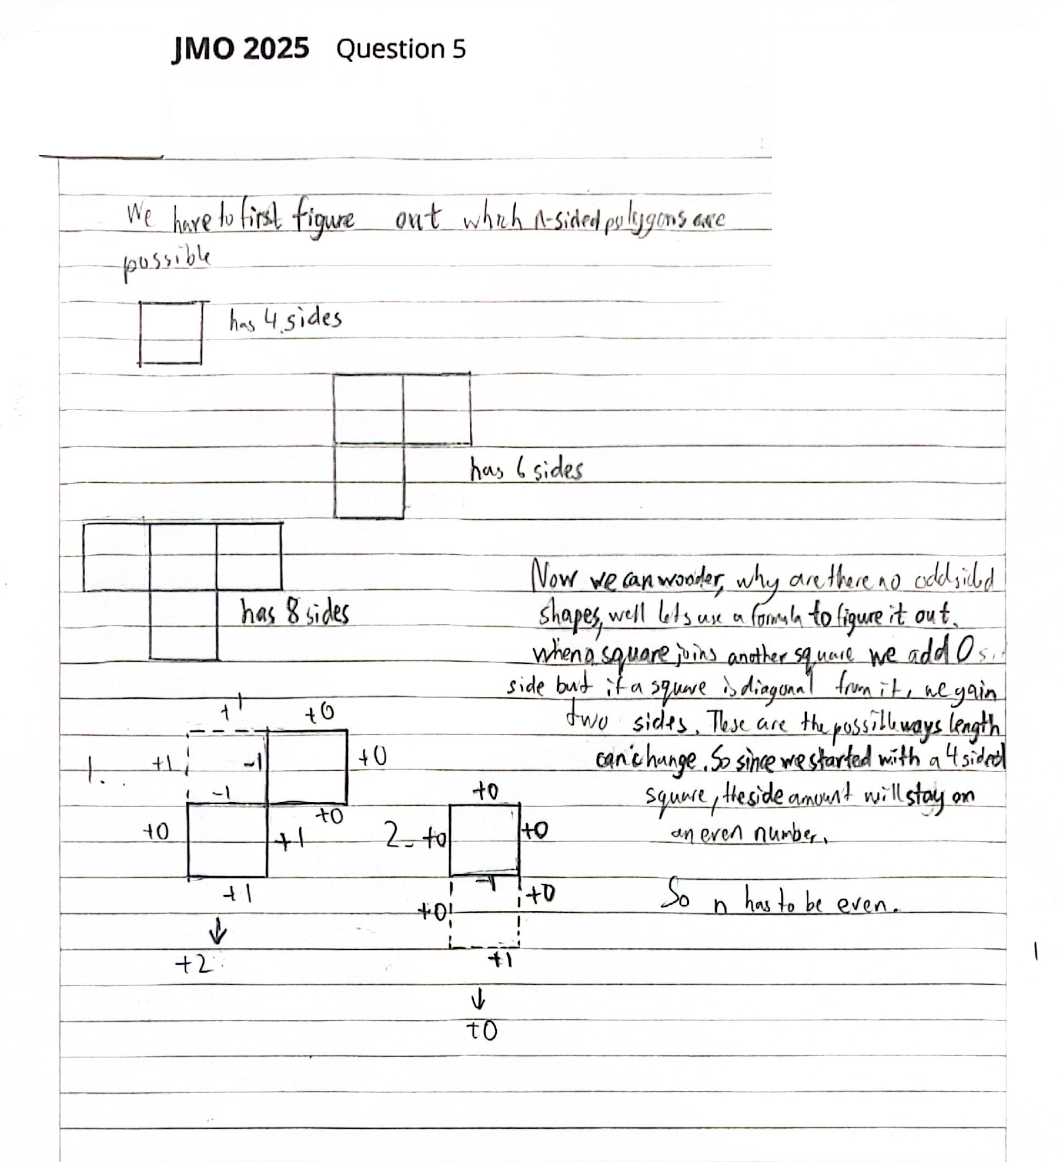 JMO 2025 Question 5
We have to first figure out which n-sided polygons are
possible
has 4 sides
has 6 sides
has 8 sides
Now we can wonder, why are there no odd sided
shapes, well lets use a formula to figure it out.
when a square joins another square we add 0 s.
side but if a square is diagonal from it, we gain
two sides. These are the possible ways length
can change. So since we started with a 4 sided
square, the side amount will stay on
an even number.
So n has to be even.
1.
+1
+0
+1
-1
+0
-1
+0
+0
+1
+1
↓
+2
2.
+0
+0
+0
-1
+0
+0
+1
↓
+0
1